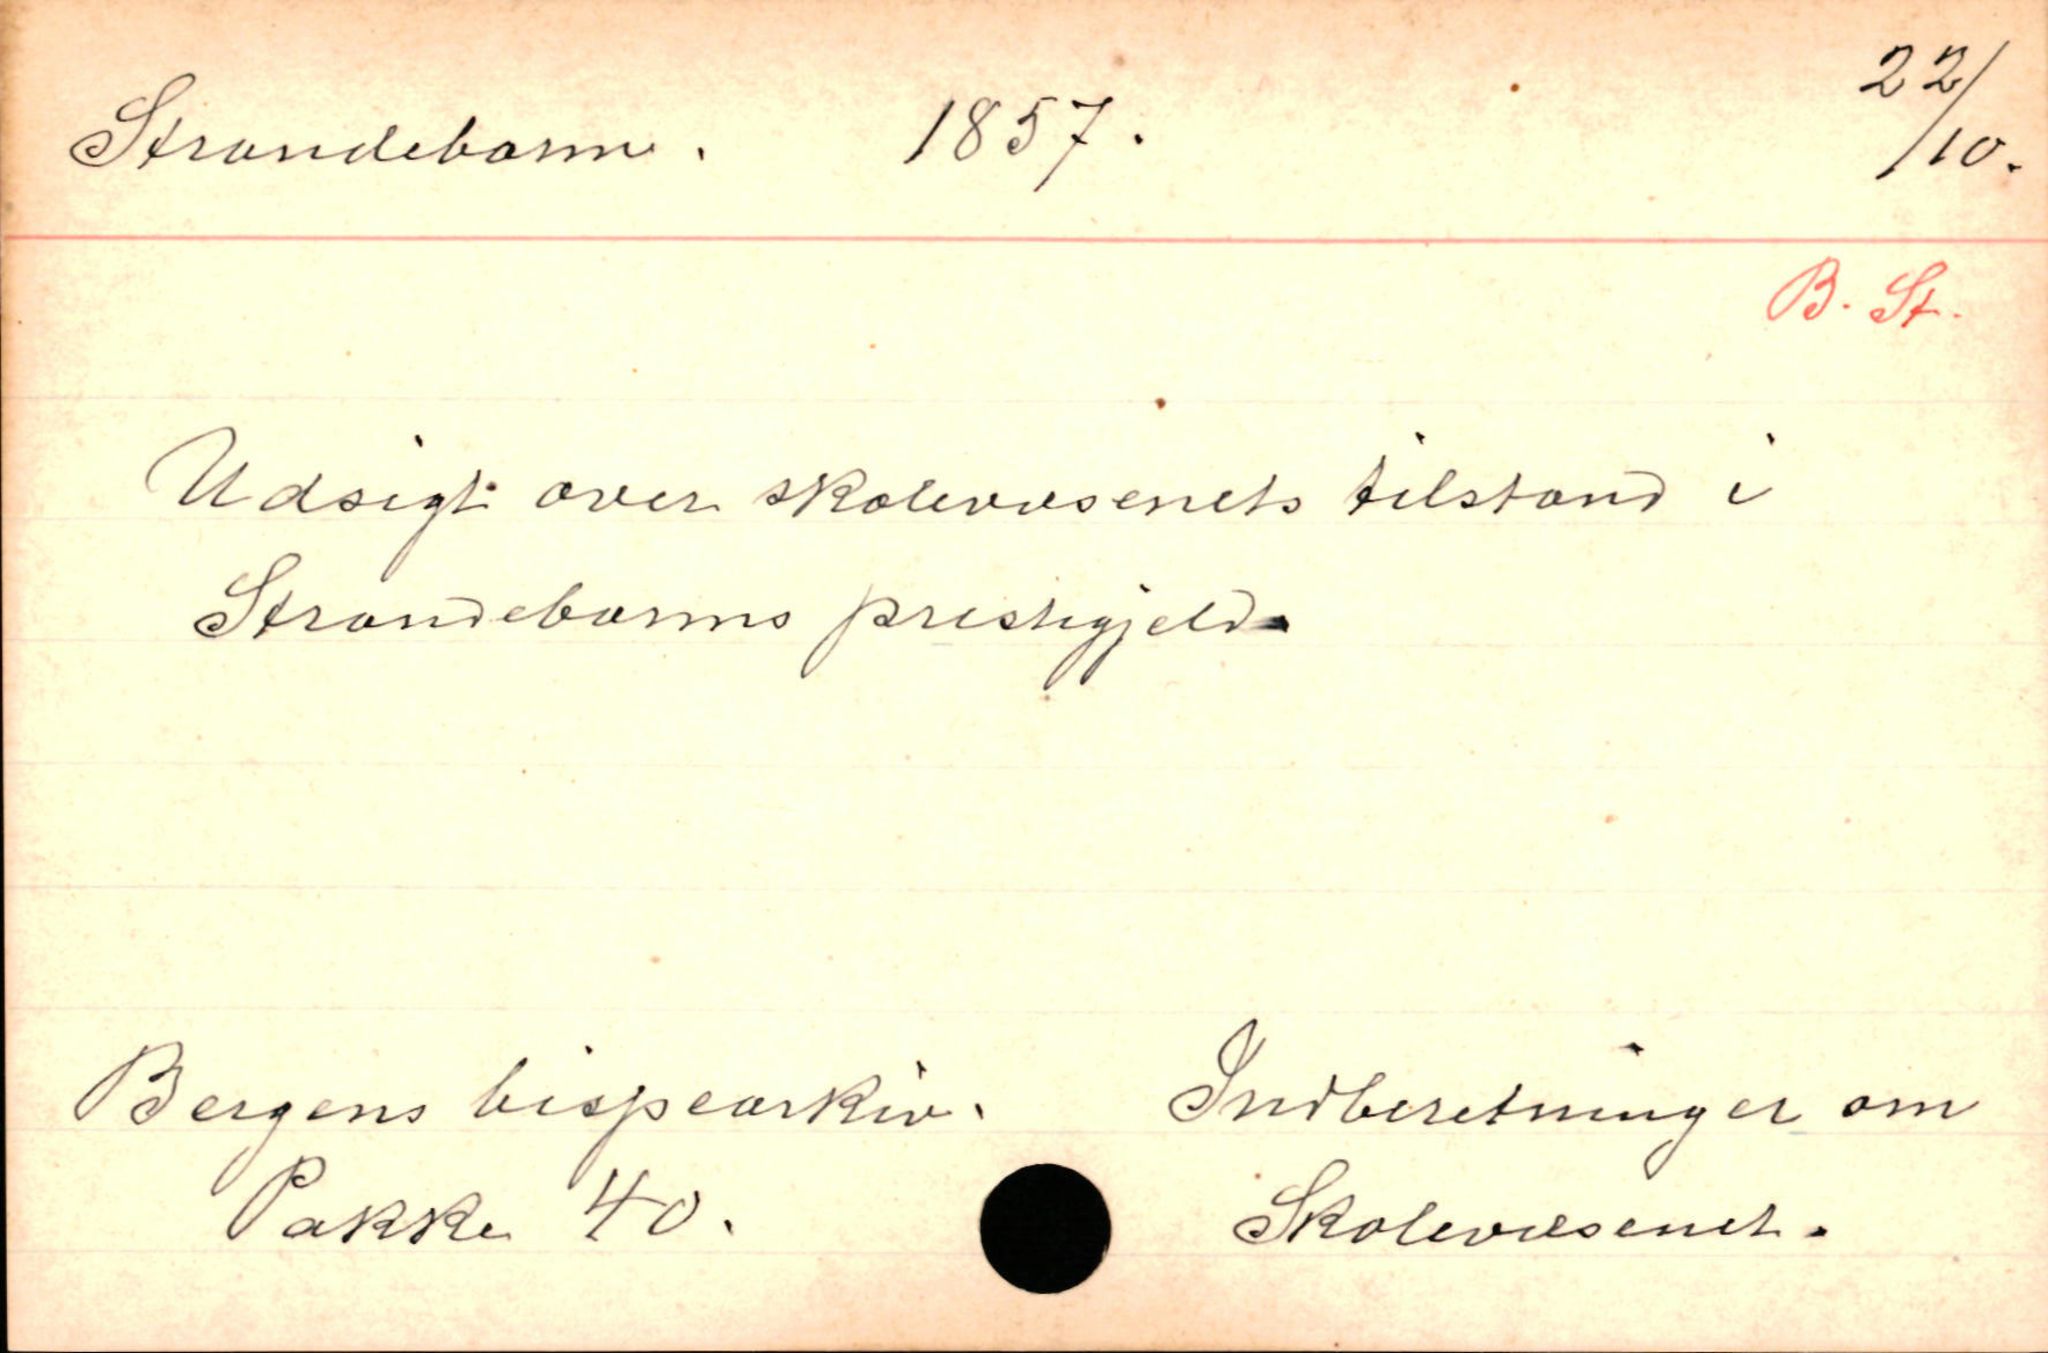 Strandebarm. 1857. 22/10.
B. St.
Udsigt over skolevæsenets tilstand i
Strandebarms prestegjeld.
Bergens bispearkiv. Indberetninger om
Pakke 40. Skolevæsenet.